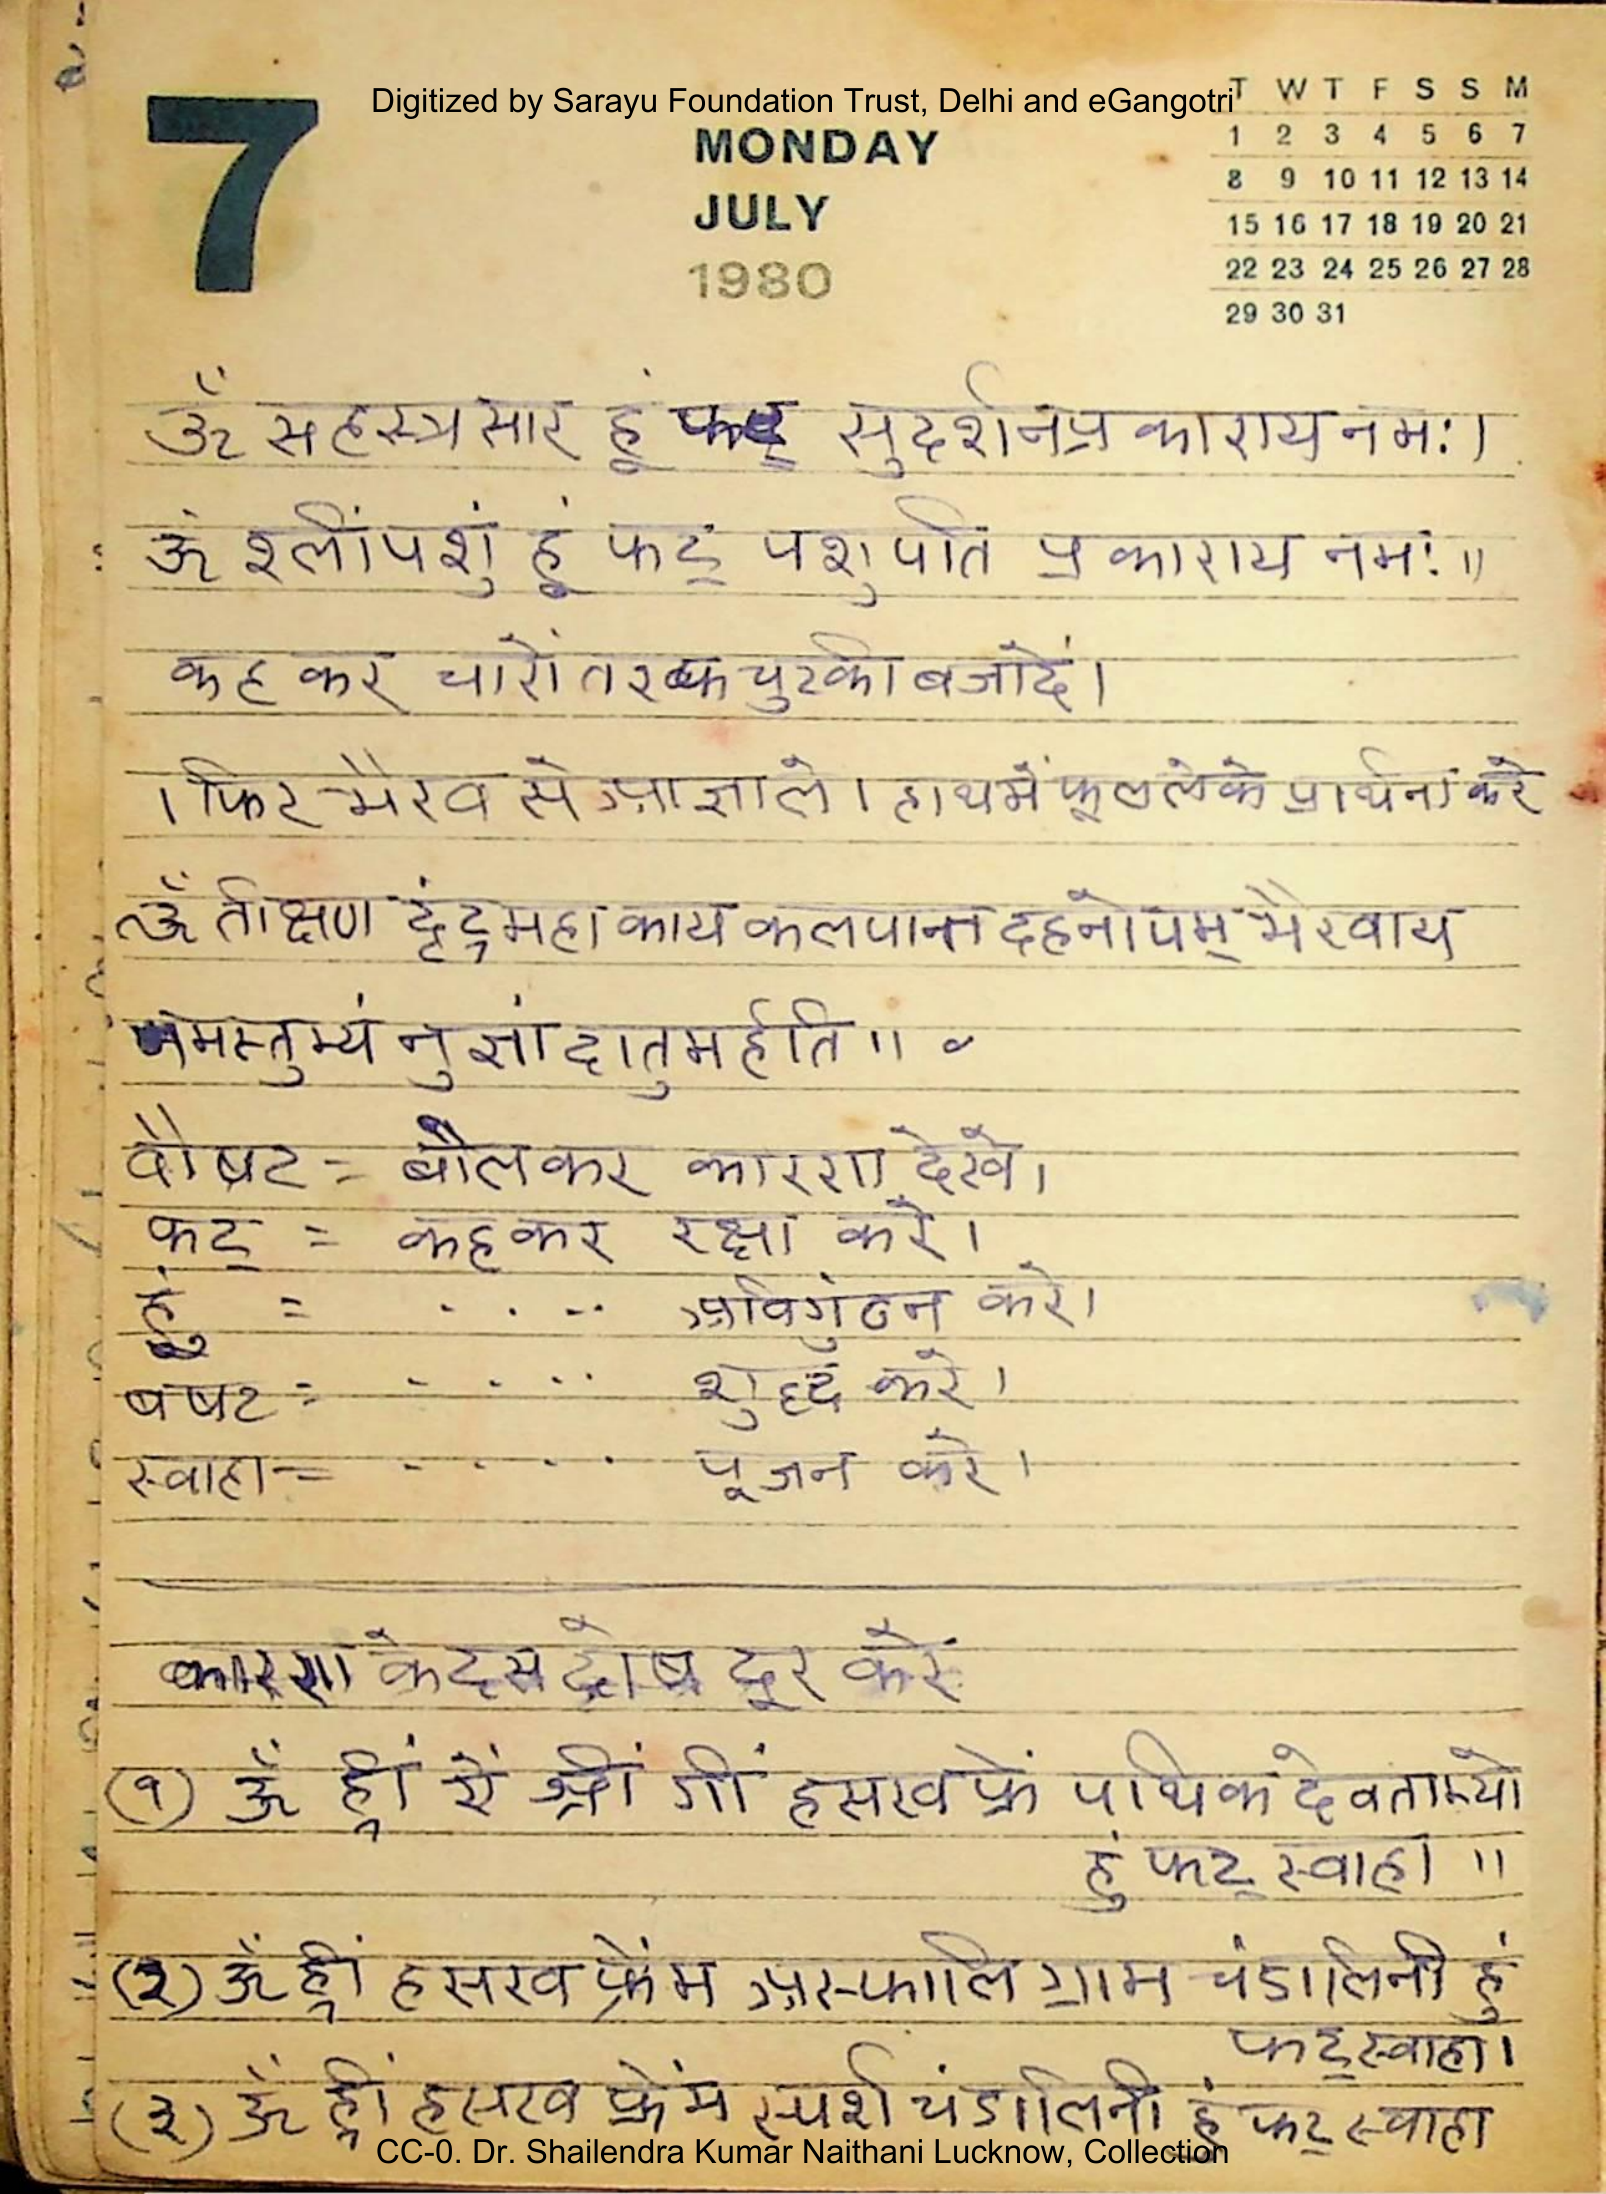 Digitized by Sarayu Foundation Trust, Delhi and eGangotri
7
MONDAY
JULY
1980
T W T F S S M
1 2 3 4 5 6 7
8 9 10 11 12 13 14
15 16 17 18 19 20 21
22 23 24 25 26 27 28
29 30 31
ॐ सहस्त्रसार हूं फट् सुदर्शनप्रकाराय नमः।
ॐ श्लीं पशुं हूं फट् पशुपति प्रकाराय नमः॥
कहकर चारों तरफ चुटकी बजादें।
। फिर भैरव से आज्ञा ले। हाथ में फूल लेके प्रार्थना करे
ॐ तीक्षण दृंद्र महाकाय कलपान्त दहनोपम् भैरवाय
नमस्तुभ्यं नुज्ञां दातुमर्हति॥
वौषट = बोलकर कारण देखे।
फट् = कहकर रक्षा करे।
हुं = . . . . अविगुंठन करे।
बषट = . . . . शुद्ध करे।
स्वाहा = . . . . पूजन करे।
कारण के दस दोष दूर करें
(१) ॐ ह्रीं ऐं श्रीं गीं हसखफ्रें पथिक देवताभ्यो
हुं फट् स्वाहा॥
(२) ॐ ह्रीं हसखफ्रेंम अस्फालि ग्राम चंडालिनी हुं
फट् स्वाहा।
(३) ॐ ह्रीं हसखफ्रेंम स्पर्श चंडालिनी हुं फट् स्वाहा
CC-0. Dr. Shailendra Kumar Naithani Lucknow, Collection